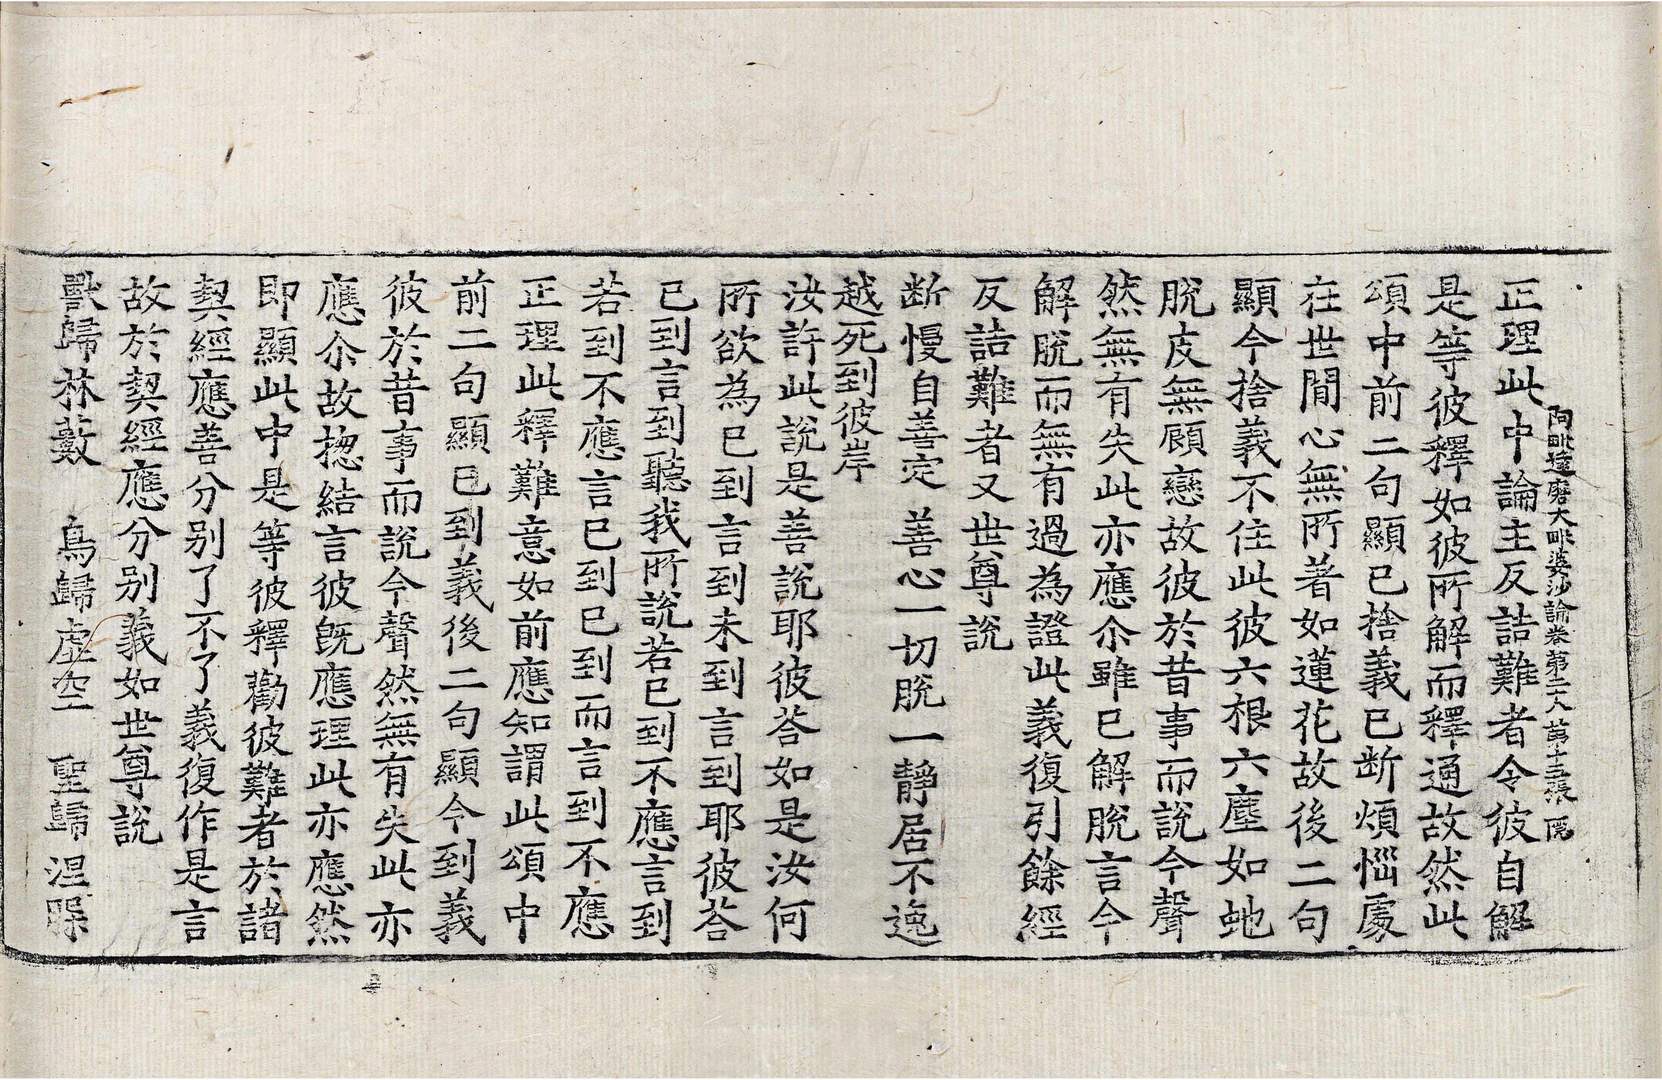 阿毗達磨大毗婆沙論卷第二八 苐十三張
正理此中論主反詰難者令彼自解
是等彼釋如彼所解而釋通故然此
頌中前二句顯已捨義已斷煩惱處
在世間心無所著如蓮花故後二句
顯今捨義不住此彼六根六塵如虵
脫皮無顧戀故彼於昔事而說今聲
然無有失此亦應尒雖已解脫言今
解脫而無有過為證此義復引餘經
反詰難者又世尊說
斷慢自善定 善心一切脫 一靜居不逸
越死到彼岸
汝許此說是善說耶彼荅如是汝何
所欲為已到言到未到言到耶彼荅
已到言到聽我所說若已到不應言到
若到不應言已到已到而言到不應
正理此釋難意如前應知謂此頌中
前二句顯已到義後二句顯今到義
彼於昔事而說今聲然無有失此亦
應尒故揔結言彼旣應理此亦應然
即顯此中是等彼釋勸彼難者於諸
契經應善分別了不了義復作是言
故於契經應分別義如世尊說
獸歸林藪 鳥歸虛空 聖歸涅槃